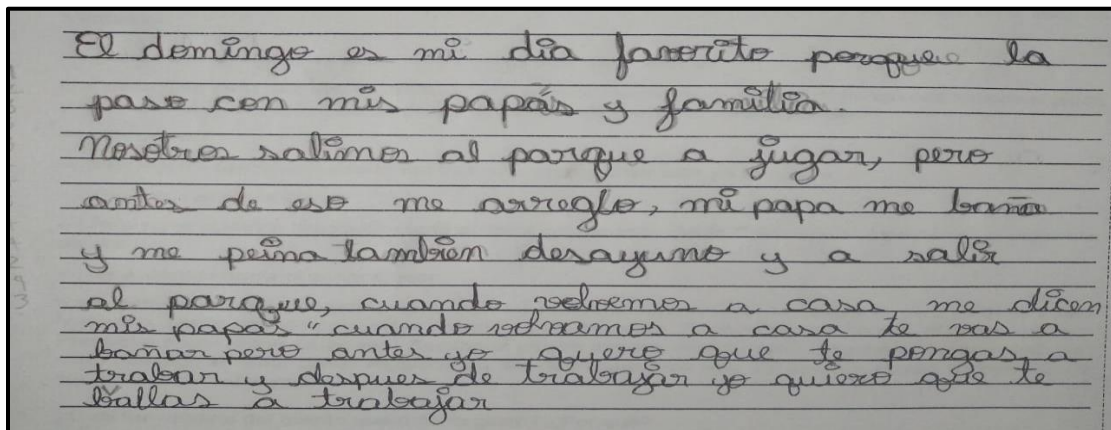 El domingo es mi dia favorito porque la
paso con mis papás y familia.
Nosotros salimos al parque a jugar, pero
antes de eso me arreglo, mi papa me baña
y me peina tambien desayuno y a salir
al parque, cuando volvemos a casa me dicen
mis papás "cuando volvamos a casa te vas a
bañar pero antes yo quero que te pongas a
trabar y despues de trabajar yo quiero que te
ballas a trabajar